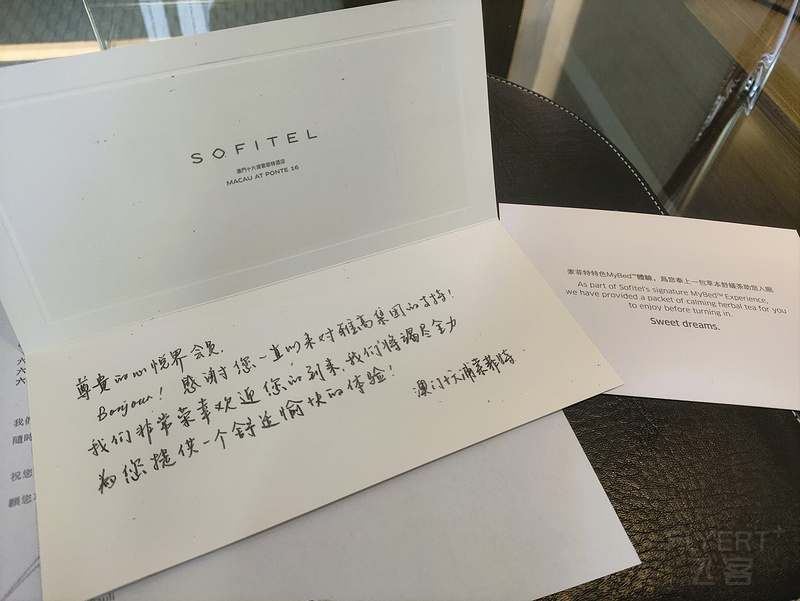 SOFITEL
澳門十六浦索菲特酒店
MACAU AT PONTE 16
尊貴的心悦界会员,
Bonjour! 感谢您一直以来对雅高集团的支持!
我们非常荣幸欢迎您的到来,我们将竭尽全力
为您提供一个舒适愉快的体验!
澳门十六浦索菲特
索菲特特色MyBed™體驗,爲您奉上一包草本舒緩茶助您入眠
As part of Sofitel's signature MyBed™ Experience,
we have provided a packet of calming herbal tea for you
to enjoy before turning in.
Sweet dreams.
六
六
我們
隨時
祝您
願您
FLYERT
飞客